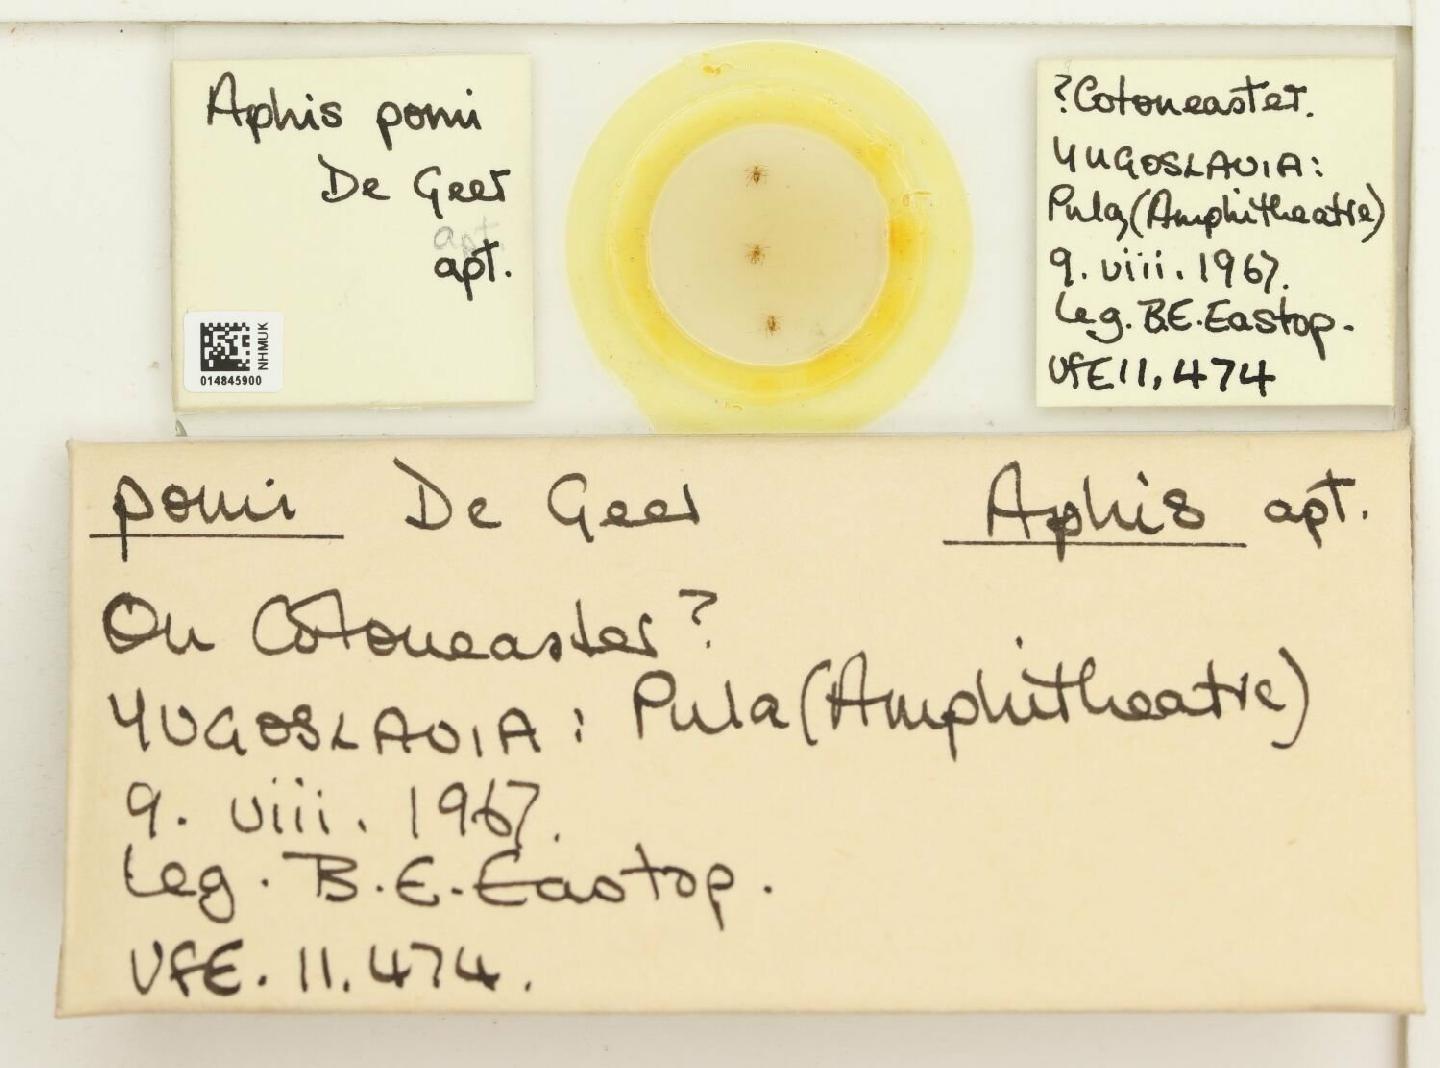 Aphis pomi
De Geer
apt.
apt.
NHMUK
014845900
?Cotoneaster.
YUGOSLAVIA:
Pula (Amphitheatre)
9. viii. 1967.
Leg. B.E. Eastop.
VFE 11,474
pomi De Geer Aphis apt.
On Cotoneaster?
YUGOSLAVIA: Pula (Amphitheatre)
9. viii. 1967.
Leg. B.E. Eastop.
VFE. 11.474.